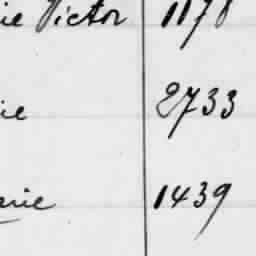 ie Victor 1178
ie 2733
arie 1439